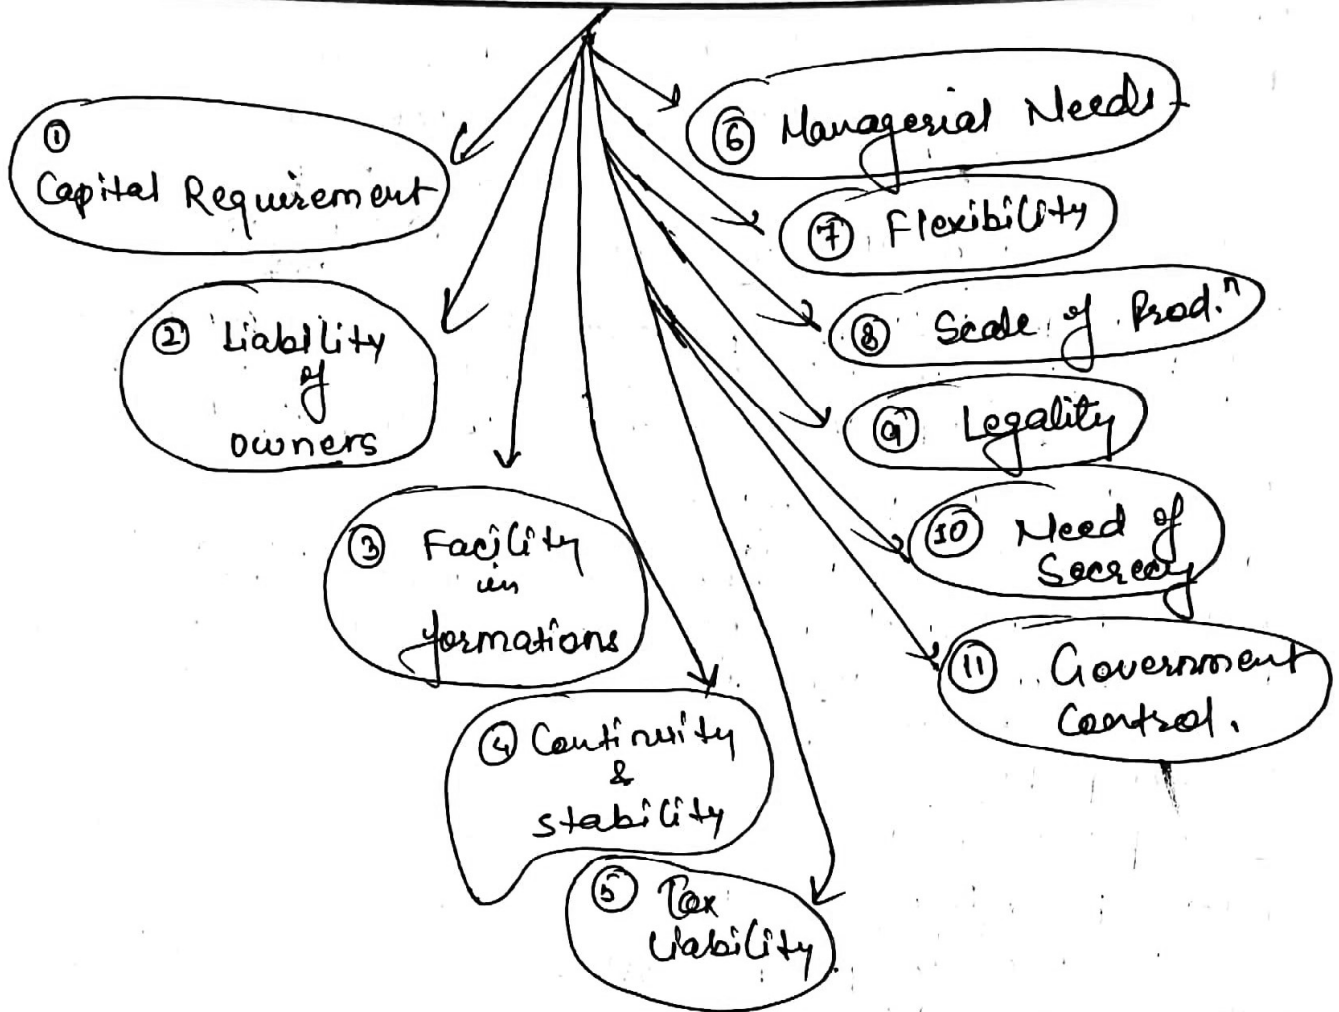 ①
Capital Requirement
② Liability
of
owners
③ Facility
in
formations
④ Continuity
&
stability
⑤ Tax
Liability
⑥ Managerial Needs
⑦ Flexibility
⑧ Scale of Prod.ⁿ
⑨ Legality
⑩ Need of
Secrecy
⑪ Government
Control.